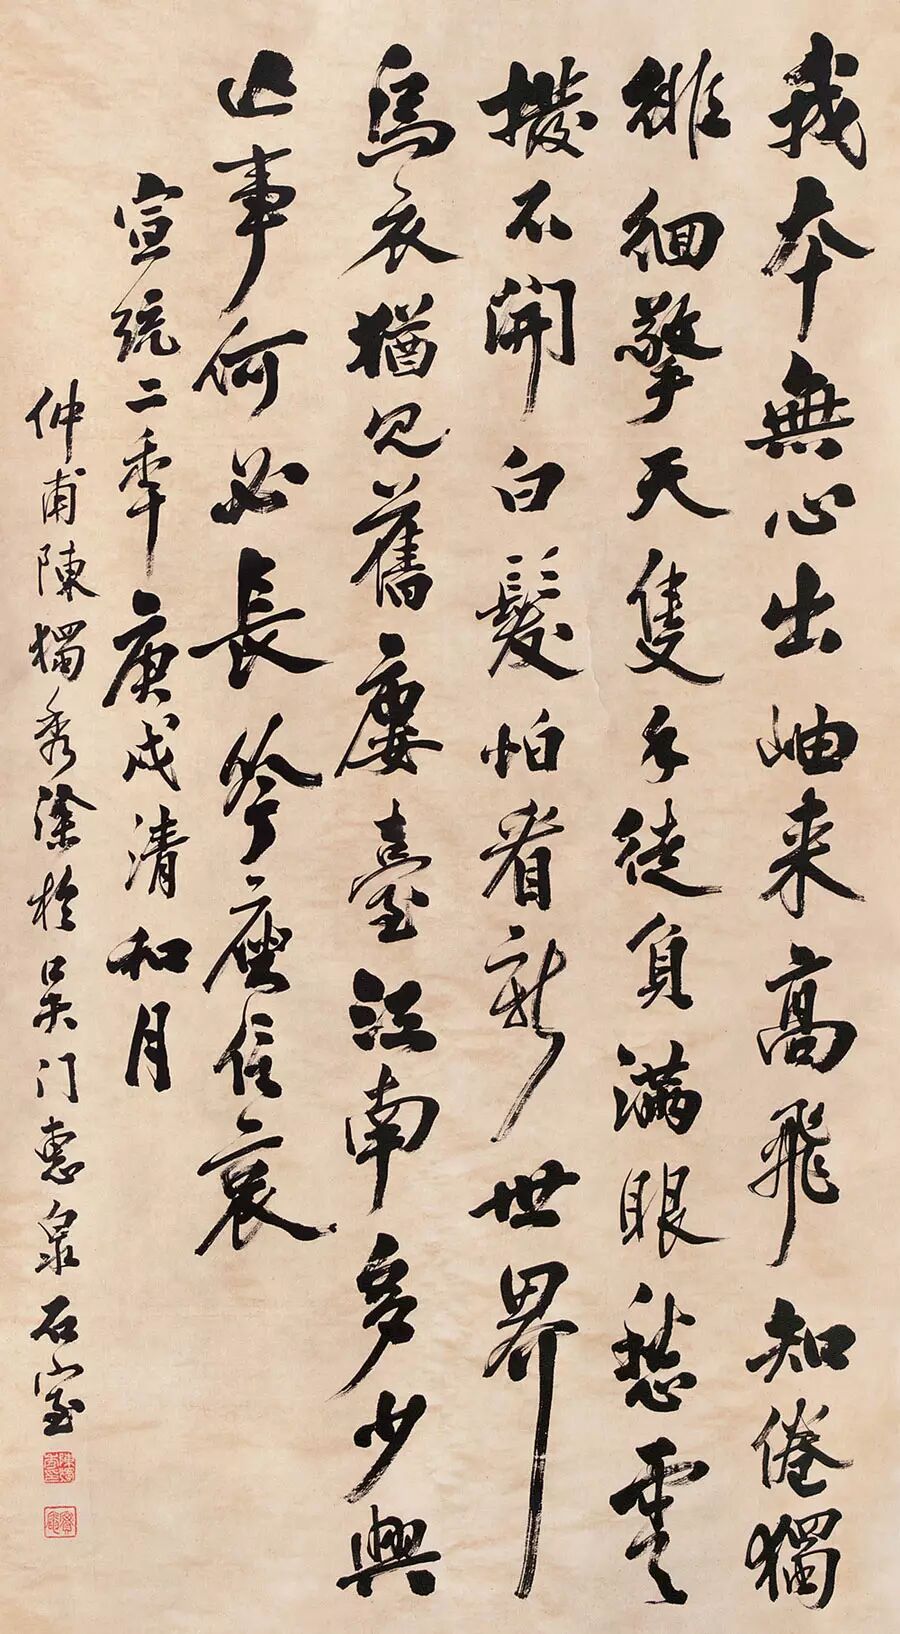 我本無心出岫来高飛知倦獨
徘徊擎天隻手徒負滿眼愁雲
撥不開白髮怕看新世界
烏衣猶見舊樓臺江南多少興
亡事何必長吟庾信哀
宣統二年庚戌清和月
仲甫陳獨秀塗於吳门惠泉石室